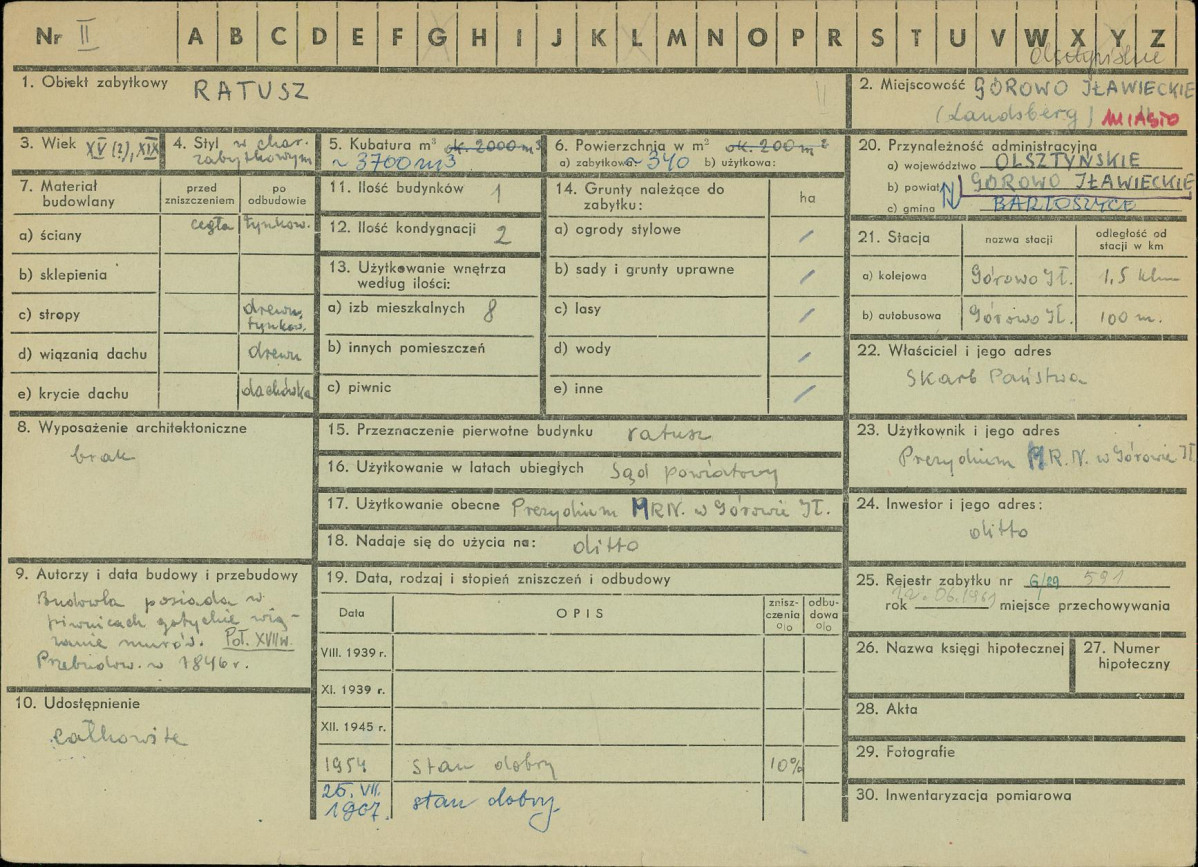 Nr II A B C D E F G H I J K L M N O P R S T U V W X Y Z
1. Obiekt zabytkowy RATUSZ
2. Miejscowość GÓROWO IŁAWECKIE
(Landsberg) MIASTO
3. Wiek XV (?), XIX
4. Styl w char.
zabytkowym
5. Kubatura m³ ok. 2000 m³
~ 3700 m³
6. Powierzchnia w m² ok. 200 m²
a) zabytkowa ~ 340 b) użytkowa:
20. Przynależność administracyjna
a) województwo OLSZTYŃSKIE
b) powiat GÓROWO IŁAWECKIE
c) gmina BARTOSZYCE
7. Materiał budowlany
przed zniszczeniem
po odbudowie
a) ściany cegła tynkow.
b) sklepienia
c) stropy drewn. tynkow.
d) wiązania dachu drewn
e) krycie dachu dachówka
11. Ilość budynków 1
12. Ilość kondygnacji 2
13. Użytkowanie wnętrza
według ilości:
a) izb mieszkalnych 8
b) innych pomieszczeń
c) piwnic
14. Grunty należące do
zabytku: ha
a) ogrody stylowe /
b) sady i grunty uprawne /
c) lasy /
d) wody /
e) inne /
21. Stacja nazwa stacji odległość od stacji w km
a) kolejowa Górowo Ił. 1,5 klm
b) autobusowa Górowo Ił. 100 m.
22. Właściciel i jego adres
Skarb Państwa
8. Wyposażenie architektoniczne
brak
15. Przeznaczenie pierwotne budynku ratusz
16. Użytkowanie w latach ubiegłych Sąd powiatowy
17. Użytkowanie obecne Prezydium MRN. w Górowie Ił.
18. Nadaje się do użycia na: ditto
23. Użytkownik i jego adres
Prezydium M.R.N. w Górowie Ił
24. Inwestor i jego adres:
ditto
9. Autorzy i data budowy i przebudowy
Budowla posiada w
piwnicach gotyckie wią-
zanie murów. Poł. XVIIw.
Przebudow. w 1846 r.
10. Udostępnienie
całkowite
19. Data, rodzaj i stopień zniszczeń i odbudowy
Data OPIS znisz-czenia o/o odbu-dowa o/o
VIII. 1939 r.
XI. 1939 r.
XII. 1945 r.
1954 stan dobry 10%
26. VII.
1967. stan dobry.
25. Rejestr zabytku nr G/29 591
12.06.1961
rok miejsce przechowywania
26. Nazwa księgi hipotecznej
27. Numer
hipoteczny
28. Akta
29. Fotografie
30. Inwentaryzacja pomiarowa